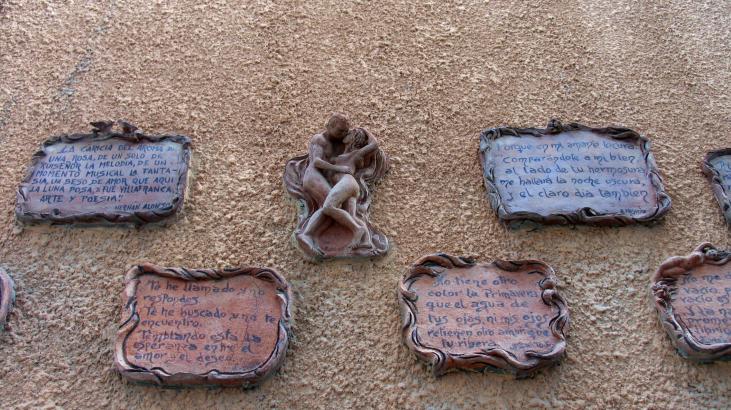 "LA CARICIA DEL AROMA DE
UNA ROSA, DE UN SOLO DE
RUISEÑOR LA MELODIA, DE UN
MOMENTO MUSICAL LA FANTA-
SIA, UN BESO DE AMOR QUE AQUI
LA LUNA POSA, FUE VILLAFRANCA,
ARTE Y POESIA".
HERNAN ALONSO
Porque en mi amante locura,
Comparándole a mi bien
al lado de tu hermosura
me hallará la noche oscura,
y el claro día también
Te he llamado y no
respondes.
Te he buscado y no te
encuentro.
Temblando está la
esperanza entre el
amor y el deseo.
No tiene otro
color la Primavera
que el agua de
tus ojos, ni mis ojos
retienen otro amor que
tu ribera